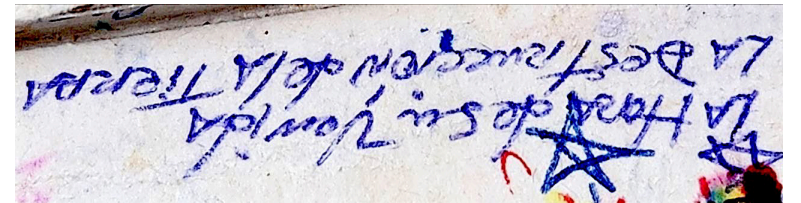 LA Hora de su Venida
LA Destruccion de la Tierra